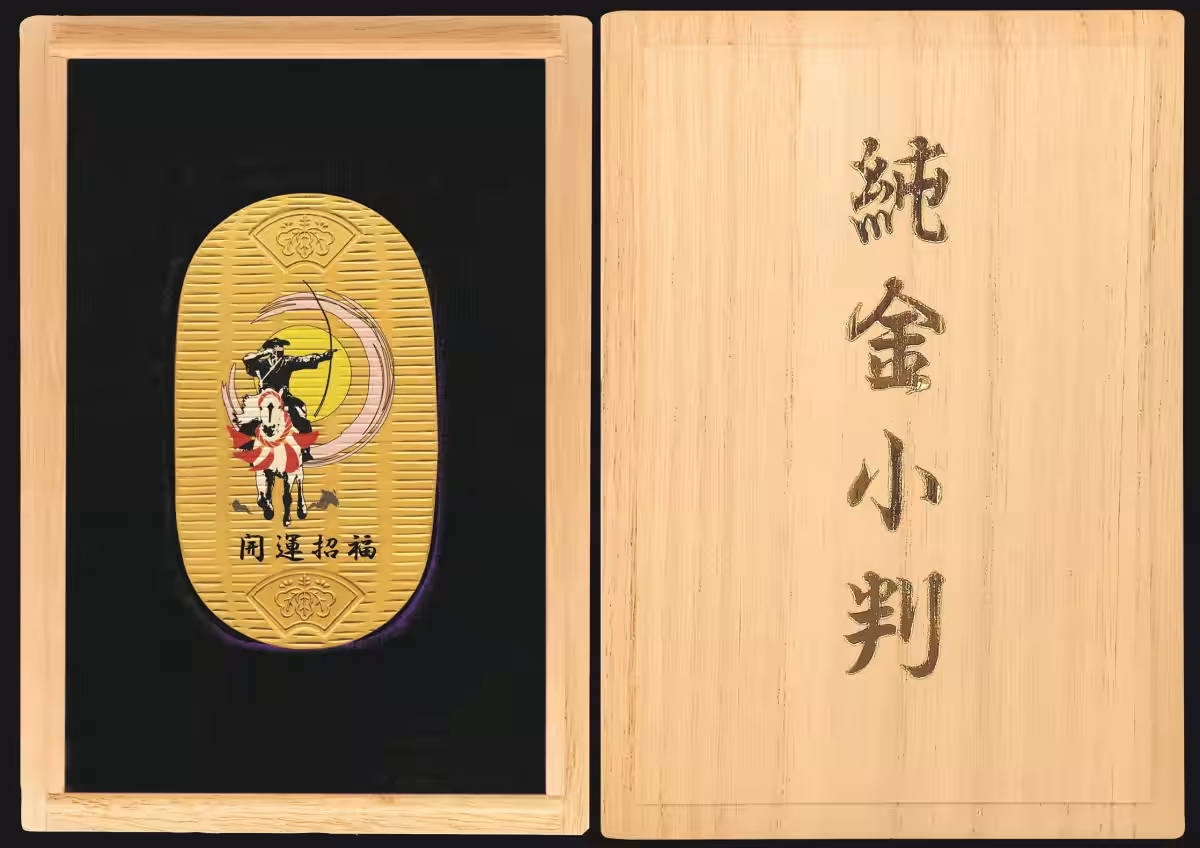 開運招福
純金小判